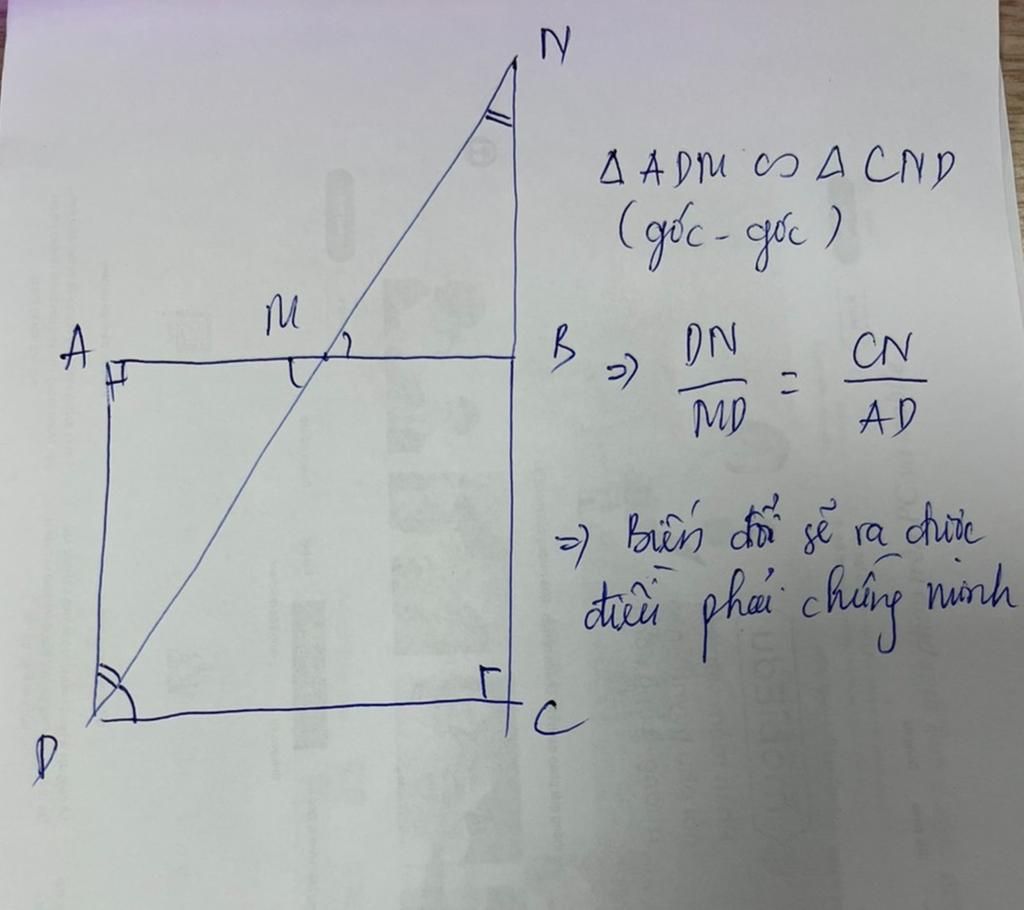 N
Δ ADM ∽ Δ CND
(góc - góc)
M
A
B
⇒ DN/MD = CN/AD
⇒ Biến đổi sẽ ra được
điều phải chứng minh
D
C